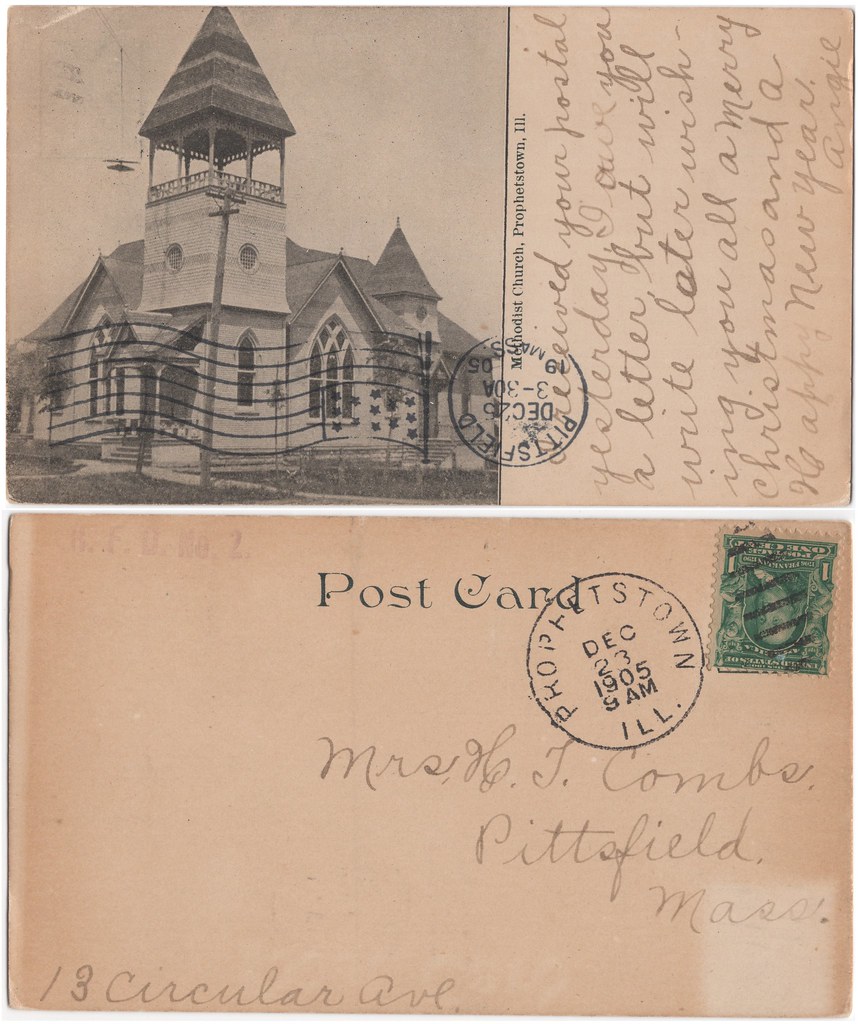 Methodist Church, Prophetstown, Ill.
received your postal
yesterday, I owe you
a letter, but will
write later wish-
ing you all a merry
Christmas and a
Happy New Year.
Angie
PITTSFIELD
DEC 26
3-30A
19 05
MASS.
R. F. D. No. 2.
Post Card
PROPHETSTOWN
DEC
23
1905
9 AM
ILL.
1 1
Mrs. H. T. Combs.
Pittsfield,
Mass.
13 Circular Ave.